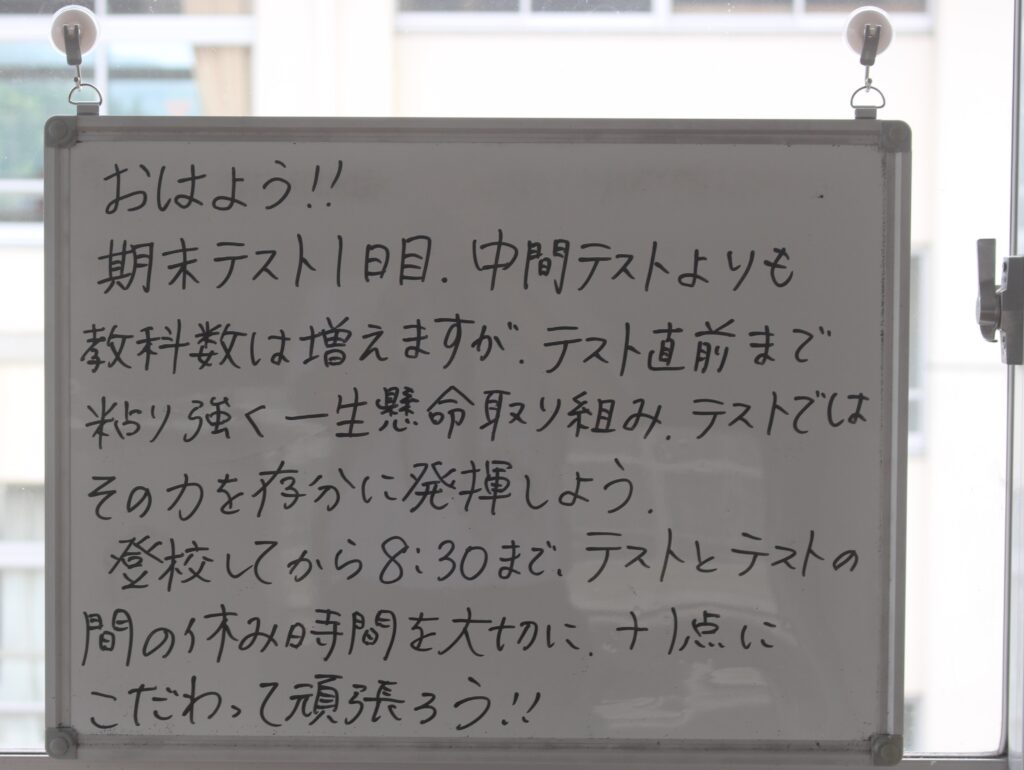 おはよう!!
期末テスト1日目. 中間テストよりも
教科数は増えますが. テスト直前まで
粘り強く一生懸命取り組み. テストでは
その力を存分に発揮しよう.
登校してから8:30まで. テストとテストの
間の休み時間を大切に. +1点に
こだわって頑張ろう!!